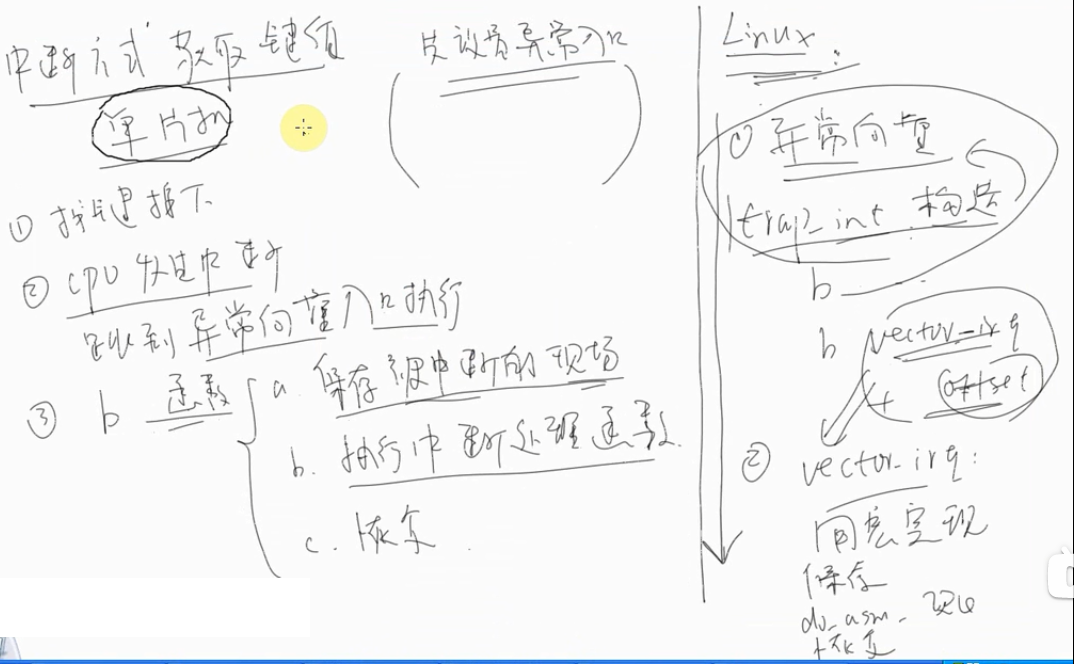 中断方式 获取键值
单片机
① 按键按下
② CPU 发生中断
跳到异常向量入口执行
③ b 函数
a. 保存被中断的现场
b. 执行中断处理函数.
c. 恢复
先设置异常入口
Linux:
① 异常向量
trap_int 构造
b
b vector_irq
+ offset
② vector_irq:
用宏实现
保存
do_asm_
恢复